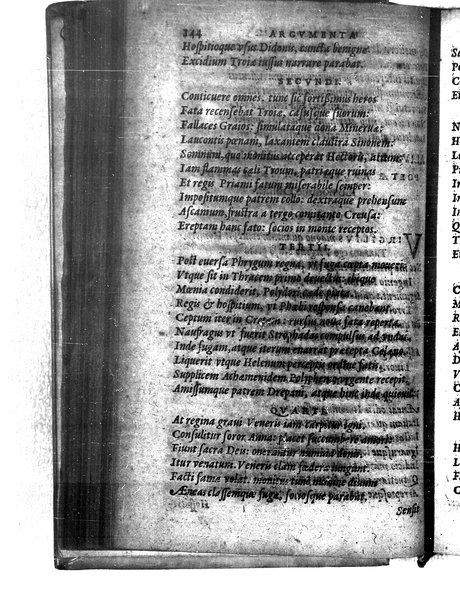 344 ARGVMENTA
Hospitioque vsus Didonis, cuncta benigne
Excidium Troiæ iussus narrare parabat.
SECVNDI.
Conticuere omnes, tunc sic fortissimus heros
Fata recensebat Troiæ, casusque suorum:
Fallaces Graios: simulataque dona Mineruæ:
Laucontis pœnam, laxantem claustra Sinonem:
Somnum, quo monitus acceperat Hectoris, atrum:
Iam flammas cæli Troum, patriæque ruinas
Et regis Priami fatum miserabile semper:
Impositumque patrem collo: dextraque prehensum
Ascanium, frustra a tergo comitante Creusa:
Ereptam hanc fato: socios in monte receptos.
TERTII.
Post euersa Phrygum regna, vt fuga cœpta moueri:
Vtque sit in Thracem primo deuectus: ibique
Mœnia condiderit, Polydori cæde piata
Regis & hospitium, vt Phœbi responsa canebant
Ceptum iter in Cretam: rursus noua fata reperta.
Naufragus vt fuerit Strophadas compulsus ad vndas,
Inde fugam, atque iterum enarrat præcepta
Liquerit vtque Helenum percepto ordine fati,
Supplicem Achæmenidem Polyphemo vrgente recepit,
Amissumque patrem Drepani, atque hinc inde
QVARTI.
At regina graui Veneris iam carpitur igni.
Consulitur soror Anna: placet succumbere amori:
Fiunt sacra Deum: onerantur numina donis.
Itur venatum. Veneris clam fœdera iungunt.
Facti fama volat. monitus tunc numine diuum
Æneas classemque fugæ, sociosque parabat.
Sensit